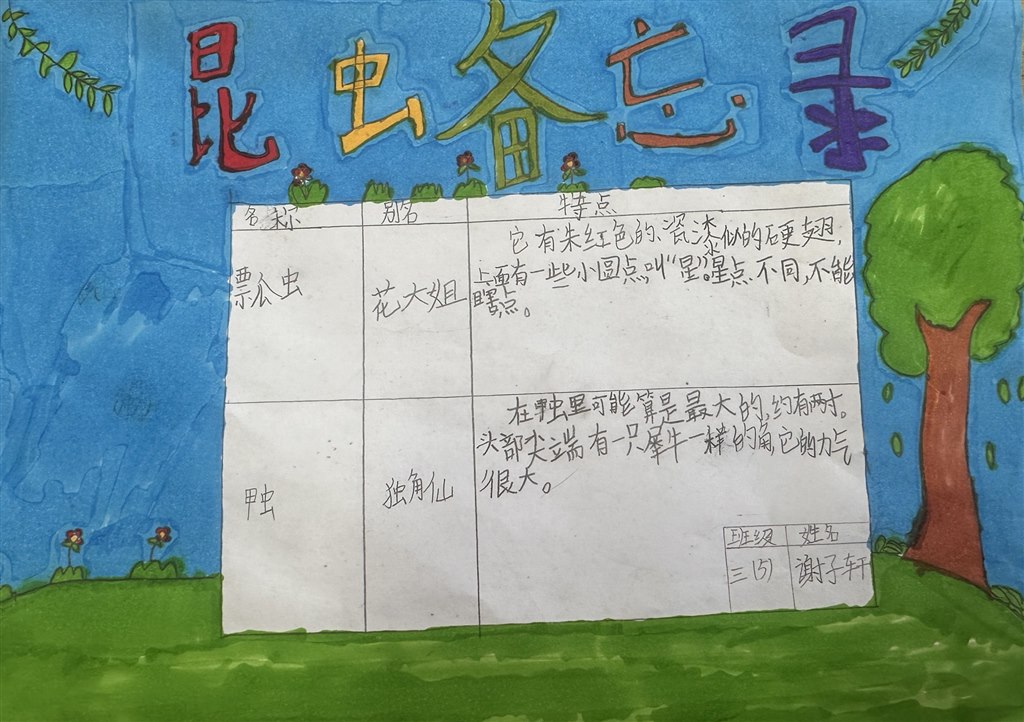 昆虫备忘录
名称 别名 特点
瓢虫 花大姐
它有朱红色的、瓷漆似的硬翅,
上面有一些小圆点叫"星"。星点不同,不能
瞎点。
甲虫 独角仙
在甲虫里可能算是最大的,约有两寸。
头部尖端有一只犀牛一样的角,它的力气
很大。
班级 姓名
三(5) 谢子轩